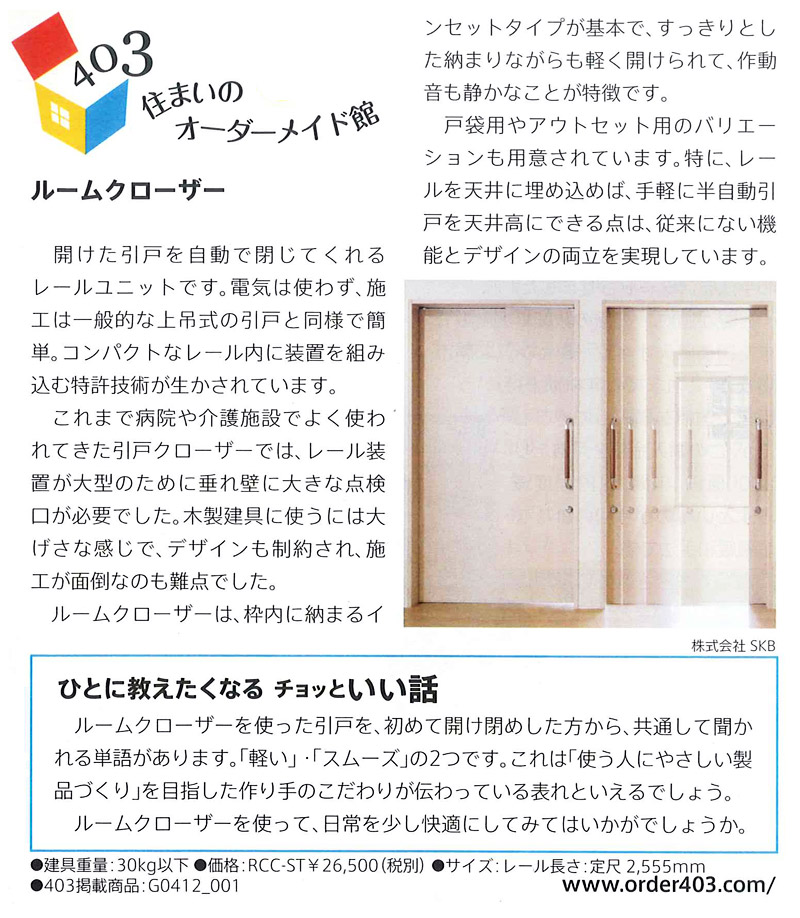 403
住まいの
オーダーメイド館
ルームクローザー
開けた引戸を自動で閉じてくれる
レールユニットです。電気は使わず、施
工は一般的な上吊式の引戸と同様で簡
単。コンパクトなレール内に装置を組み
込む特許技術が生かされています。
これまで病院や介護施設でよく使わ
れてきた引戸クローザーでは、レール装
置が大型のために垂れ壁に大きな点検
口が必要でした。木製建具に使うには大
げさな感じで、デザインも制約され、施
工が面倒なのも難点でした。
ルームクローザーは、枠内に納まるイ
ンセットタイプが基本で、すっきりとし
た納まりながらも軽く開けられて、作動
音も静かなことが特徴です。
戸袋用やアウトセット用のバリエー
ションも用意されています。特に、レー
ルを天井に埋め込めば、手軽に半自動引
戸を天井高にできる点は、従来にない機
能とデザインの両立を実現しています。
株式会社 SKB
ひとに教えたくなる チョッといい話
ルームクローザーを使った引戸を、初めて開け閉めした方から、共通して聞か
れる単語があります。「軽い」・「スムーズ」の2つです。これは「使う人にやさしい製
品づくり」を目指した作り手のこだわりが伝わっている表れといえるでしょう。
ルームクローザーを使って、日常を少し快適にしてみてはいかがでしょうか。
●建具重量:30kg以下 ●価格:RCC-ST¥26,500(税別) ●サイズ:レール長さ:定尺 2,555mm
●403掲載商品:G0412_001
www.order403.com/